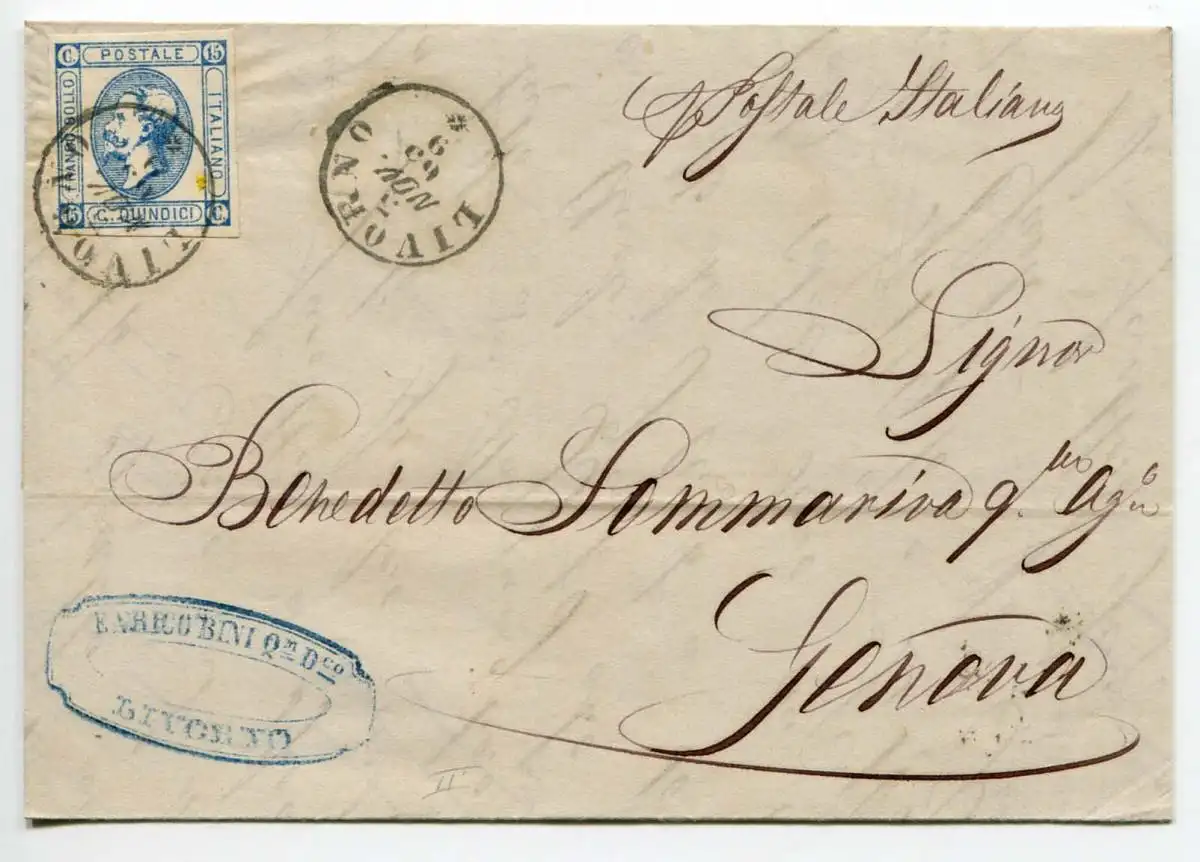 C. POSTALE 15
FRANCO BOLLO
ITALIANO
15 C. QUINDICI C.
LIVORNO
LIVORNO
NOV
63
p Postale Italiano
Signor
Benedetto Sommariva q.
Genova
ENRICO BINI Qm. Dco
LIVORNO
II